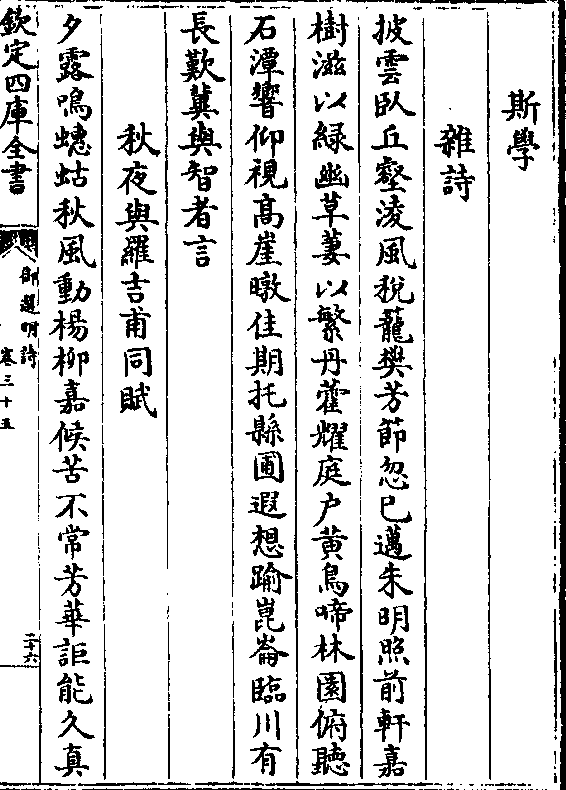 斯學
雜詩
披雲臥丘壑淩風稅蘢樊芳節忽已邁朱明照前軒嘉
樹滋以緑幽草萋以繁丹藿耀庭户黄鳥啼林園俯聽
石潭響仰視高崖暾佳期托縣圃遐想踰崑崙臨川有
長歎冀與智者言
秋夜與羅吉甫同賦
夕露鳴蟪蛄秋風動楊柳嘉候苦不常芳華詎能久真
欽定四庫全書
御選明詩
卷三十五
二十六